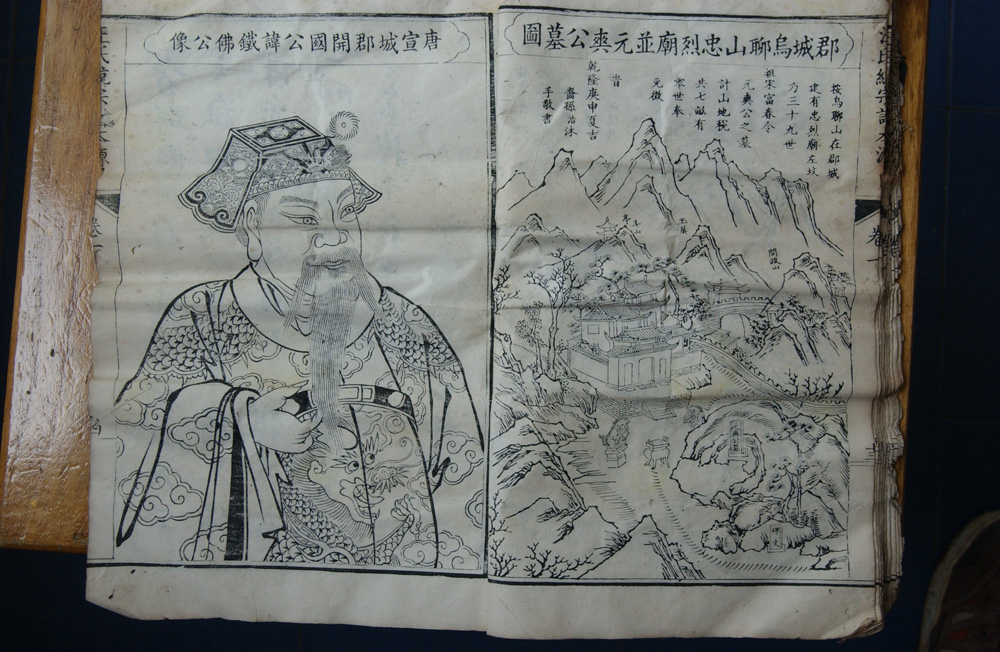 郡城烏聊山忠烈廟並元爽公墓圖
按烏聊山在郡城
建有忠烈廟左坟
乃三十九世
祖宋富春令
元爽公之墓
計山地稅
共七畝有
零世奉
免徵
旹
乾隆庚申夏吉
裔孫治沐
手敬書
問政山
唐宣城郡開國公諱鐵佛公像